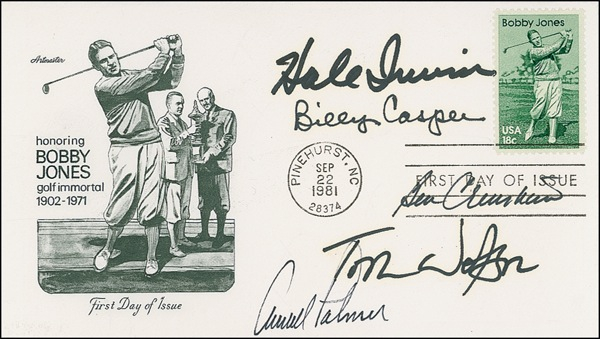 Artmaster
honoring
BOBBY
JONES
golf immortal
1902-1971
First Day of Issue
Hale Irwin
Billy Casper
PINEHURST, NC
SEP
22
1981
28374
Bobby Jones
USA
18c
FIRST DAY OF ISSUE
Ben Crenshaw
Tom Watson
Arnold Palmer